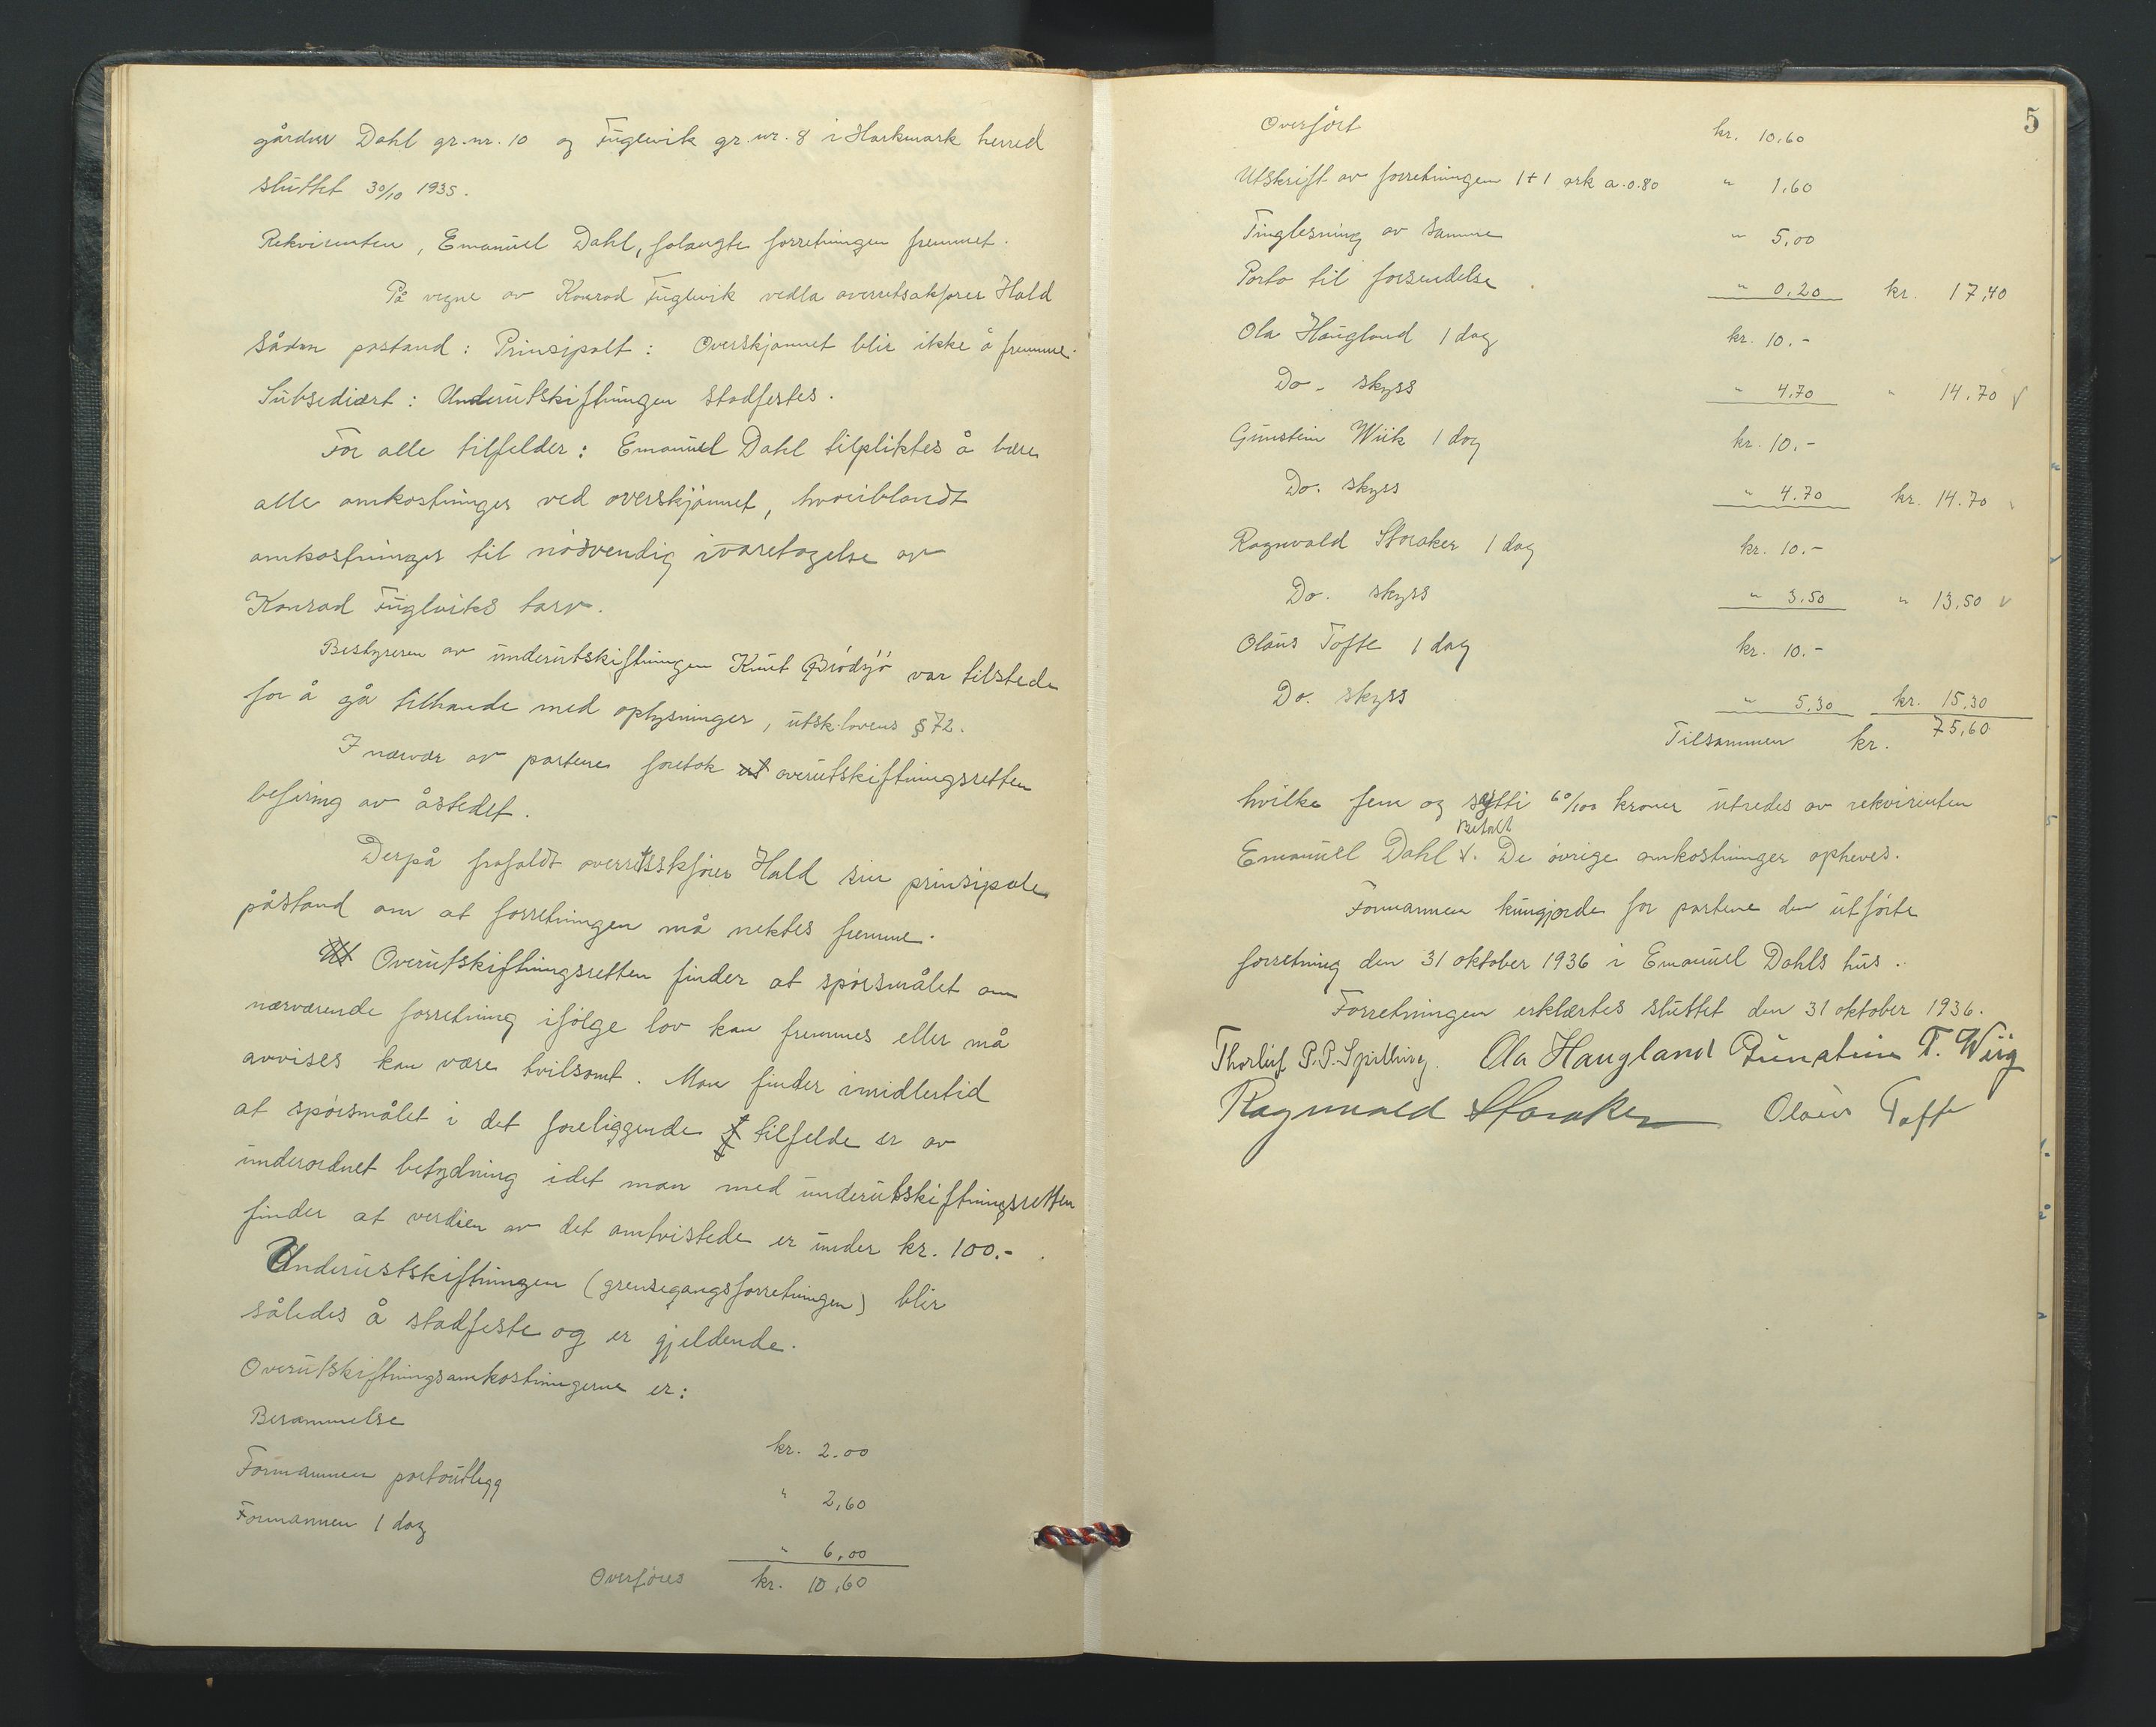 gården Dahl gr.nr. 10 og Fuglevik gr.nr. 8 i Harkmark herred
sluttet 30/10 1935.
Rekvirenten, Emanuel Dahl, forlangte forretningen fremmet.
På vegne av Konrad Fuglevik nedla overretssakfører Hald
sådan påstand: Prinsipalt: Overskjønnet blir ikke å fremme.
Subsediært: Underutskiftningen stadfestes.
For alle tilfelder: Emanuel Dahl tilpliktes å bære
alle omkostninger ved overskjønnet, hvoriblandt
omkostninger til nødvendig ivaretagelse av
Konrad Fugleviks tarv.
Bestyreren av underutskiftningen Knut var tilstede
for å gå tilhande med oplysninger, utsk.lovens § 72.
I nærvær av partene foretok ut overutskiftningsretten
befaring av åstedet.
Derpå frafaldt overretssakfører Hald sin prinsipale
påstand om at forretningen må nektes fremme.
Ut Overutskiftningsretten finder at spørsmålet om
nærværende forretning ifølge lov kan fremmes eller må
avvises kan være tvilsomt. Man finder imidlertid
at spørsmålet i det foreliggende tilfelde er av
underordnet betydning idet man med underutskiftningsretten
finder at verdien av det omtvistede er under kr. 100.-.
Underutskiftningen (grensegangsforretningen) blir
således å stadfeste og er gjeldende.
Overutskiftningsomkostningerne er:
Berammelse kr. 2.00
Formannen portoutlegg " 2,60
Formannen 1 dag " 6,00
Overføres kr. 10,60
5
Overført kr. 10.60
Utskrift av forretningen 1+1 ark a. 0.80 " 1,60
Tinglesning av samme " 5,00
Porto til forsendelse " 0,20 kr. 17,40
Ola Haugland 1 dag kr. 10.-
Do - skyss " 4,70 " 14.70 √
Gunstein Wiik 1 dag kr. 10.-
Do. skyss " 4.70 kr. 14.70
Ragnvald Storaker 1 dag kr. 10.-
Do. skyss " 3.50 " 13,50 √
Olaus Tofte 1 dag kr. 10.-
Do. skyss " 5,30 kr. 15,30
Tilsammen kr. 75,60
hvilke fem og sytti 60/100 kroner utredes av rekvirenten
Betalt
Emanuel Dahl √. De øvrige omkostninger opheves.
Formannen kungjorde for partene den utførte
forretning den 31 oktober 1936 i Emanuel Dahls hus.
Forretningen erklærtes sluttet den 31 oktober 1936.
Thorleif P.P. Spilling. Ola Haugland Gunstein T. Wiig
Ragnvald Storaker Olaus Tofte